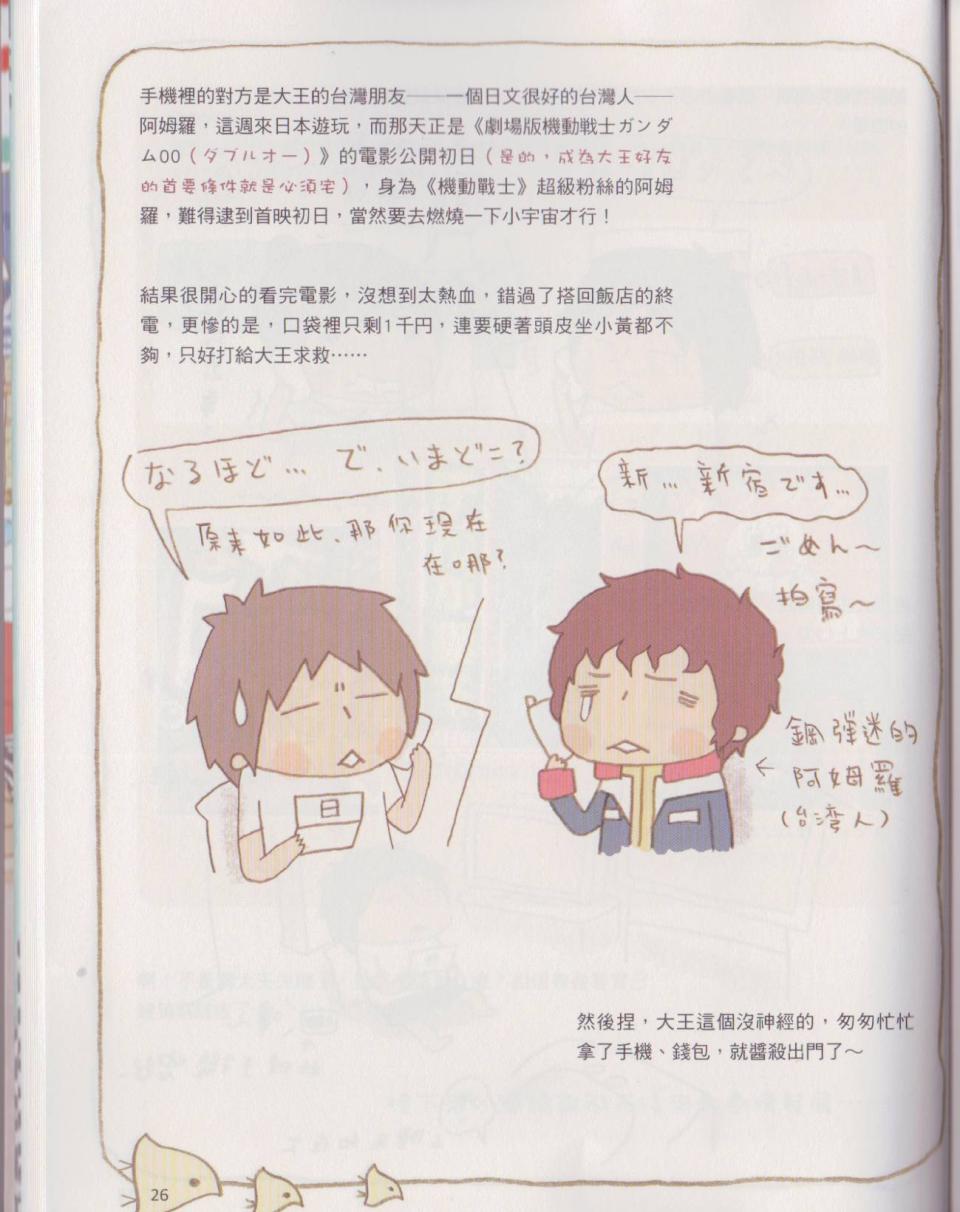 手機裡的對方是大王的台灣朋友——一個日文很好的台灣人——
阿姆羅，這週來日本遊玩，而那天正是《劇場版機動戰士ガンダ
ム00（ダブルオー）》的電影公開初日（是的，成為大王好友
的首要條件就是必須宅），身為《機動戰士》超級粉絲的阿姆
羅，難得逮到首映初日，當然要去燃燒一下小宇宙才行！
結果很開心的看完電影，沒想到太熱血，錯過了搭回飯店的終
電，更慘的是，口袋裡只剩1千円，連要硬著頭皮坐小黃都不
夠，只好打給大王求救……
なるほど…で、いまどこ？
原來如此、那你現在
在哪？
新…新宿です…
ごめん〜
拍寫〜
日
←鋼彈迷的
阿姆羅
(台湾人)
然後捏，大王這個沒神經的，匆匆忙忙
拿了手機、錢包，就醬殺出門了～
26